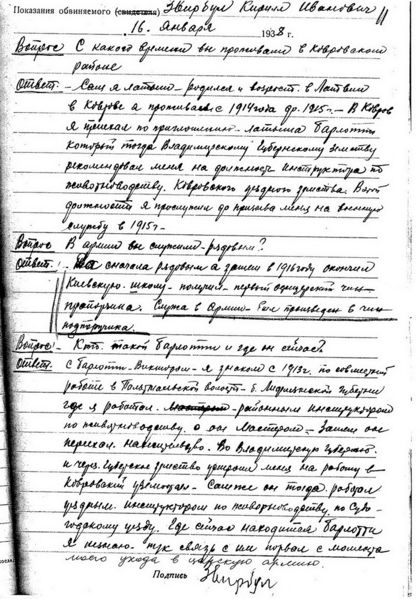 Показания обвиняемого (свидетеля) Звирбул Кирилл Иванович
11
16. Января 1938 г.
Вопрос С какого времени вы проживали в Ковровском
районе
Ответ – Сам я латыш – родился и возрост в Латвии
в Коврове я проживаю с 1914 года до 1915 г. – В Ковров
я приехал по приглашению латыша Барлотти
который тогда Владимирскому Губернскому Земству
рекомендовал меня на должность инструктора по
животноводству. Ковровского уездного земства. В этой
должности я прослужил до призыва меня на военную
службу в 1915 г.
Вопрос В армии вы служили рядовым?
Ответ: сначала рядовым а затем в 1916 году окончил
Киевскую школу – получил первый офицерский чин
прапорщика. Служа в Армии был произведен в чин
подпоручика.
Вопрос – Кто такой Барлотти и где он сейчас?
Ответ. С Барлотти Виктором – я знаком с 1913 г. по совместной
работе в волости б. Губернии
где я работал районным инструктором
по животноводству. а он Мастером – Затем он
переехал на жительство. Во Владимирскую Губернию
и через Губернское земство устроил меня на работу в
Ковровский уезд. Сам же он тогда работал
уездным инструктором по животноводству. по Судо-
годскому уезду. Где сейчас находится Барлотти
я не знаю. так связь с ним порвал с момента
моего ухода в царскую армию.
Подпись Звирбул